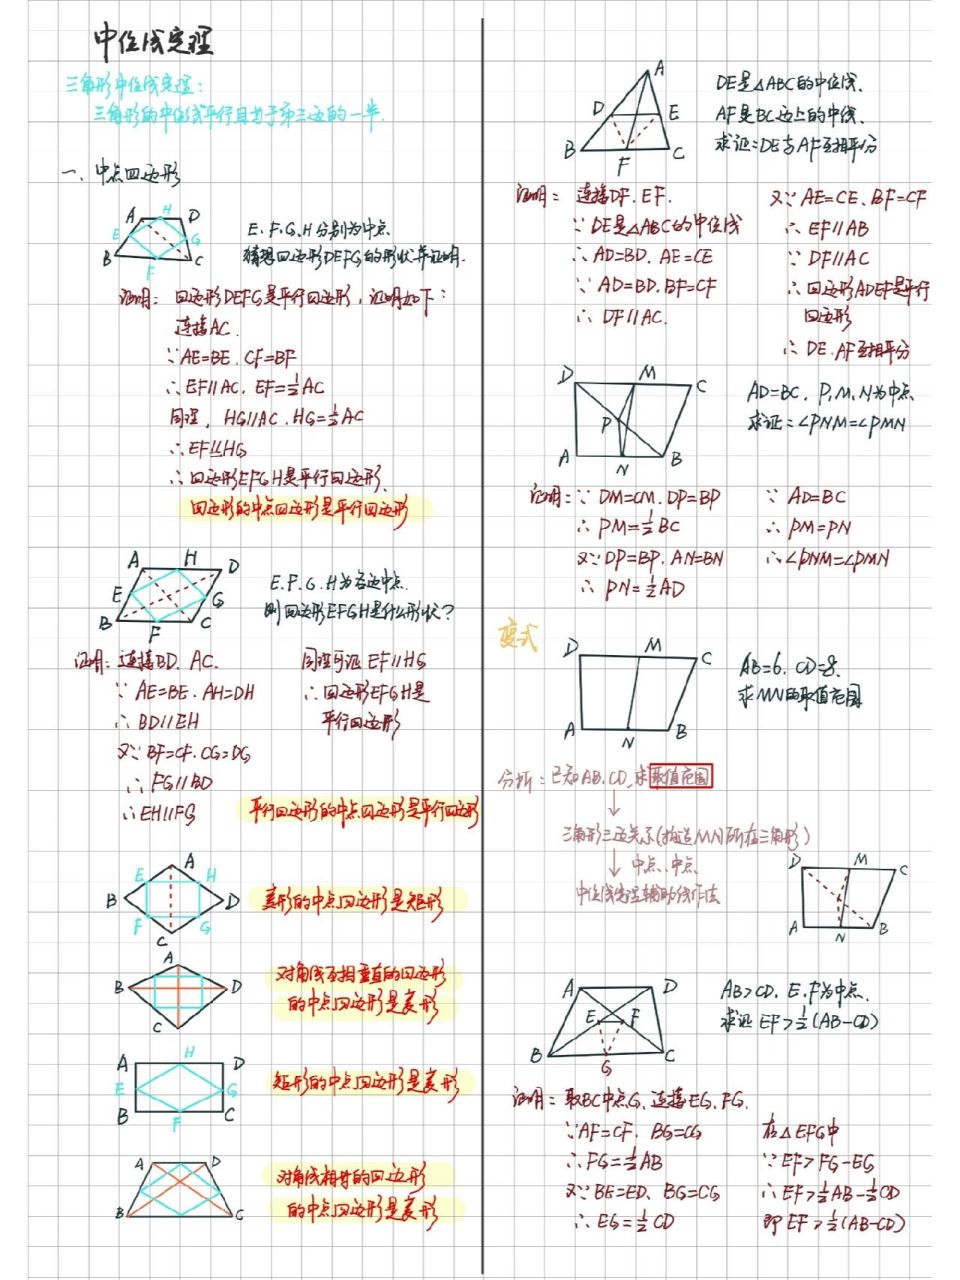 中位线定理
三角形中位线定理:
三角形的中位线平行且等于第三边的一半.
一、中点四边形
A H D
E G
B F C
E.F.G.H分别为中点
猜想四边形DEFG的形状并证明.
证明: 四边形DEFG是平行四边形,证明如下:
连接AC.
∵AE=BE.CF=BF
∴EF∥AC.EF=½AC
同理,HG∥AC.HG=½AC
∴EF∥HG
∴四边形EFGH是平行四边形.
四边形的中点四边形是平行四边形
A H D
E G
B F C
E.F.G.H为各边中点.
则四边形EFGH是什么形状?
证明:连接BD、AC.
∵AE=BE.AH=DH
∴BD∥EH
又∵BF=CF.CG=DG
∴FG∥BD
∴EH∥FG
同理可证EF∥HG
∴四边形EFGH是
平行四边形
平行四边形的中点四边形是平行四边形
A
E H
B D
F G
C
菱形的中点四边形是矩形
A
B D
C
对角线互相垂直的四边形
的中点四边形是菱形
A H D
E G
B F C
矩形的中点四边形是菱形
A D
B C
对角线相等的四边形
的中点四边形是菱形
A
D E
B F C
DE是△ABC的中位线.
AF是BC边上的中线.
求证:DE与AF互相平分
证明: 连接DF.EF.
∵DE是△ABC的中位线
∴AD=BD.AE=CE
∵AD=BD.BF=CF
∴DF∥AC.
又∵AE=CE.BF=CF
∴EF∥AB
∵DF∥AC
∴四边形ADEF是平行
四边形
∴DE.AF互相平分
D M C
P
A N B
AD=BC.P,M,N为中点
求证:∠PNM=∠PMN
证明:∵DM=CM.DP=BP
∴PM=½BC
又∵DP=BP.AN=BN
∴PN=½AD
∵AD=BC
∴PM=PN
∴∠PNM=∠PMN
变式
D M C
A N B
AB=6.CD=8.
求MN的取值范围
分析:已知AB.CD,求取值范围
↓
三角形三边关系(构造MN所在三角形)
↓中点、中点
中位线定理辅助线作法
D M C
A N B
A D
E F
B G C
AB>CD.E.F为中点.
求证EF>½(AB-CD)
证明:取BC中点G.连接EG.FG.
∵AF=CF.BG=CG
∴FG=½AB
又∵BE=ED、BG=CG
∴EG=½CD
在△EFG中
∵EF>FG-EG
∴EF>½AB-½CD
即EF>½(AB-CD)